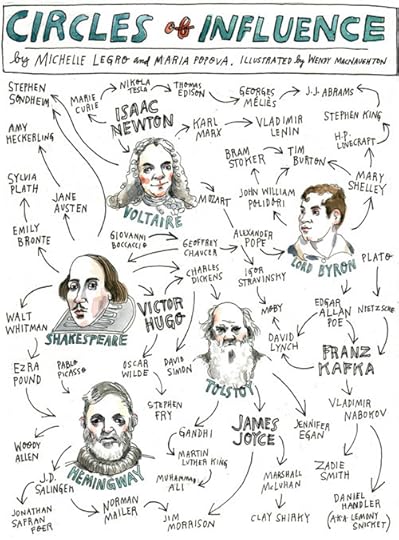 CIRCLES of INFLUENCE
by MICHELLE LEGRO and MARIA POPOVA. ILLUSTRATED by WENDY MACNAUGHTON
STEPHEN
SONDHEIM
MARIE
CURIE
NIKOLA
TESLA
THOMAS
EDISON
GEORGES
MÉLIÈS
J.J. ABRAMS
ISAAC
NEWTON
KARL
MARX
VLADIMIR
LENIN
STEPHEN KING
AMY
HECKERLING
BRAM
STOKER
TIM
BURTON
H.P.
LOVECRAFT
SYLVIA
PLATH
JANE
AUSTEN
VOLTAIRE
MOZART
JOHN WILLIAM
POLIDORI
MARY
SHELLEY
EMILY
BRONTE
GIOVANNI
BOCCACCIO
GEOFFREY
CHAUCER
ALEXANDER
POPE
LORD BYRON
PLATO
CHARLES
DICKENS
IGOR
STRAVINSKY
WALT
WHITMAN
SHAKESPEARE
VICTOR
HUGO
MOBY
EDGAR
ALLAN
POE
NIETZSCHE
EZRA
POUND
PABLO
PICASSO
OSCAR
WILDE
DAVID
SIMON
TOLSTOY
DAVID
LYNCH
FRANZ
KAFKA
STEPHEN
FRY
VLADIMIR
NABOKOV
WOODY
ALLEN
GANDHI
JAMES
JOYCE
JENNIFER
EGAN
HEMINGWAY
MARTIN
LUTHER KING
ZADIE
SMITH
J.D.
SALINGER
MUHAMMAD
ALI
MARSHALL
McLUHAN
JONATHAN
SAFRAN
FOER
NORMAN
MAILER
JIM
MORRISON
CLAY SHIRKY
DANIEL
HANDLER
(AKA LEMONY
SNICKET)